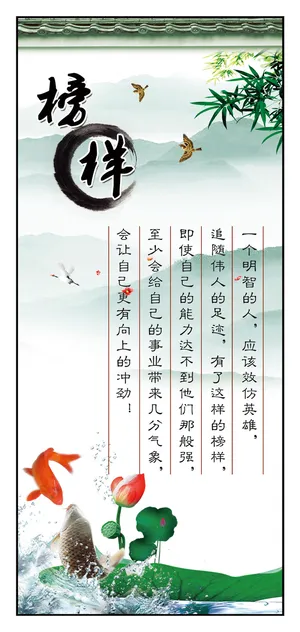 榜样
一个明智的人，应该效仿英雄，
追随伟人的足迹，有了这样的榜样，
即使自己的能力达不到他们那般强，
至少会给自己的事业带来几分气象，
会让自己更有向上的冲劲！